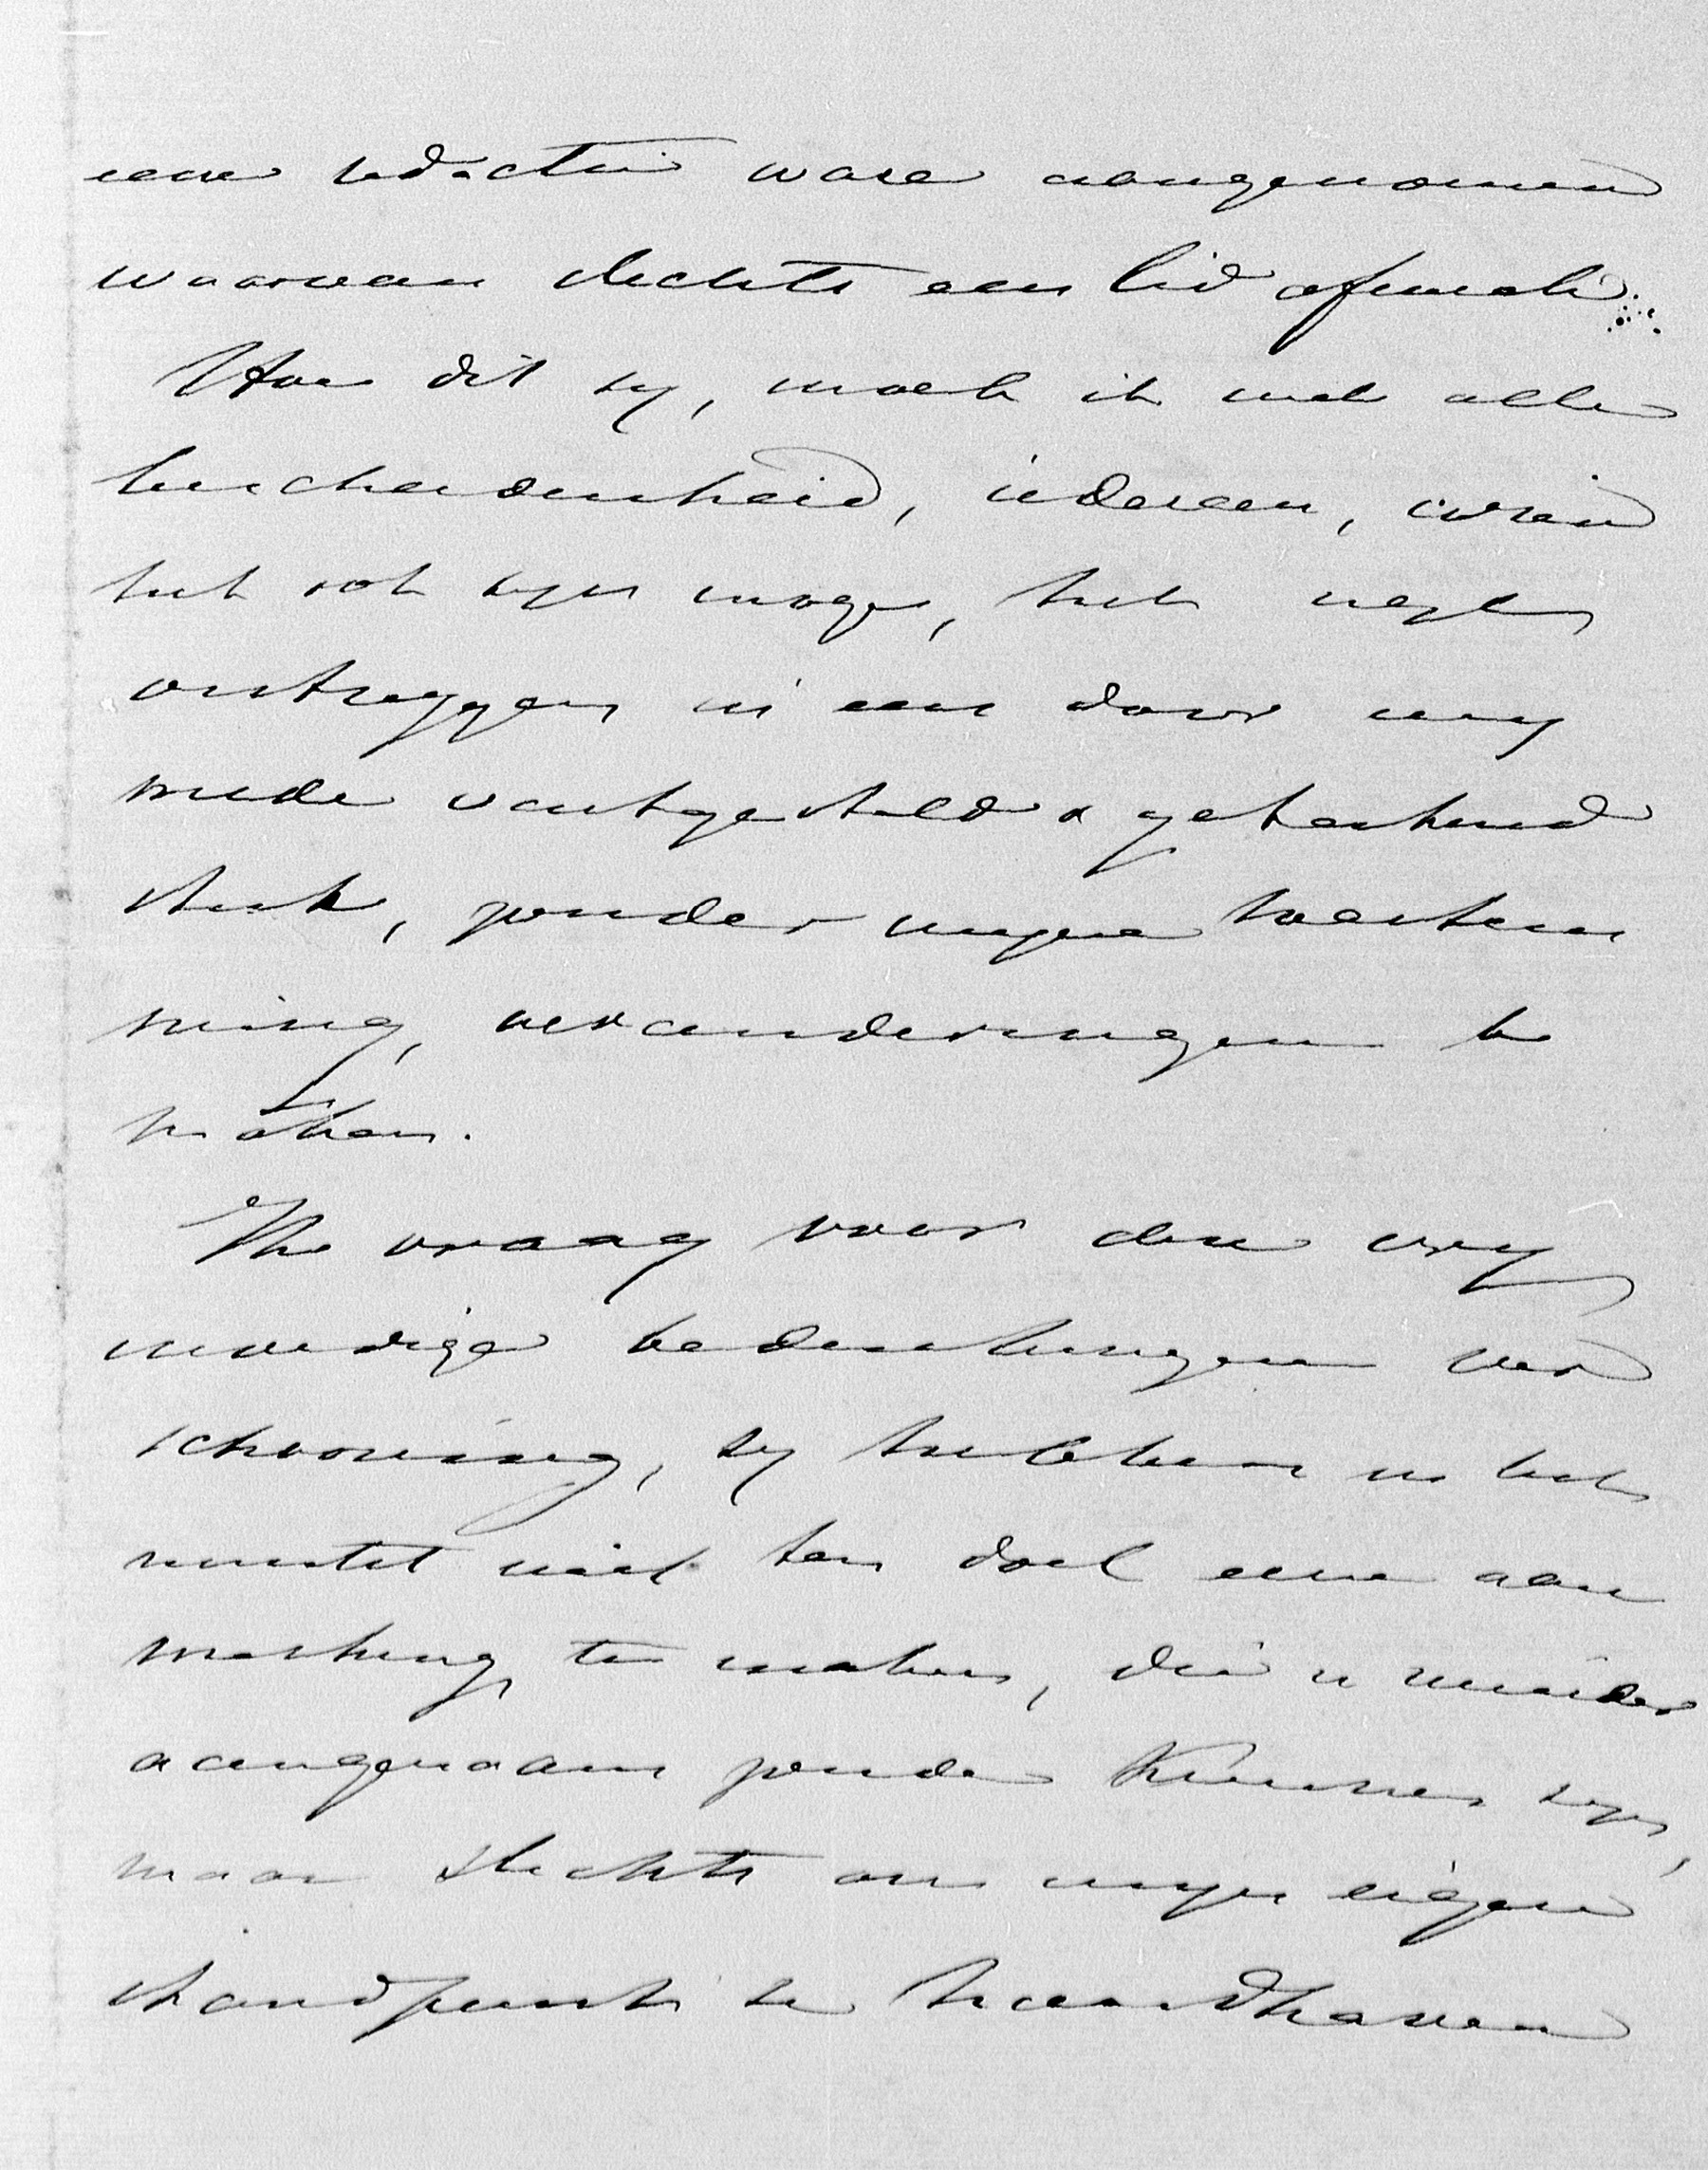 eene redactie ware aangenomen
waarvan slechts een lid afweek.
Hoe dit zy, moet ik met alle
bescheidenheid, iedereen, wien
het ook zyn moge, het regt
ontzeggen in een door my
mede vastgesteld & geteekend
stuk, zonder myne toestem
ming, veranderingen te
maken.
Ik vraag voor deze vry
moedige bedenkingen ver
schooning, zy hebben in het
minste niet ten doel eene aan
merking te maken, die u minder
aangenaam zoude kunnen zyn,
maar slechts om myn eigen
standpunt te handhaven